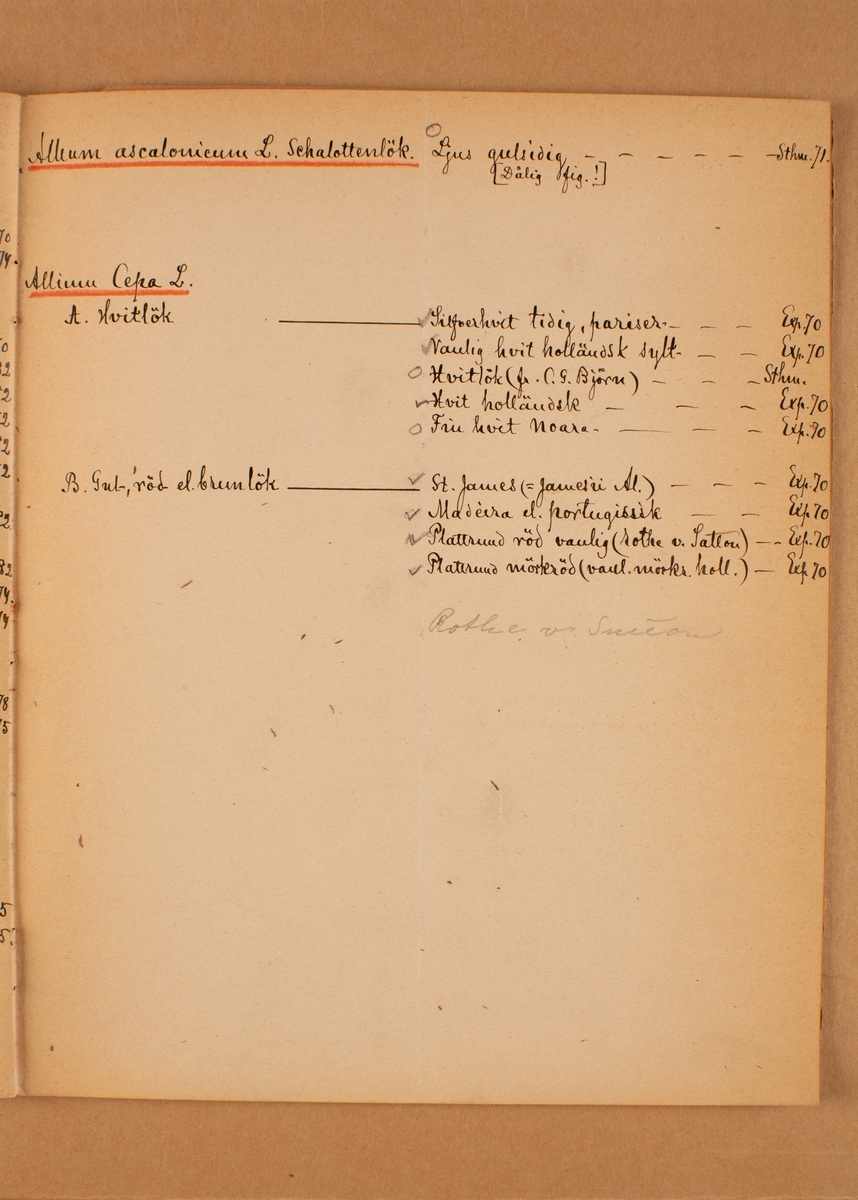 Allium ascalonicum L. Schalottenlök. Ljus gulsidig – – – – – Sthm. 71.
[Dålig fig.!]
Allium Cepa L.
A. Hvitlök Silfverhvit tidig, pariser- – – – Exp. 70
Vanlig hvit holländsk sylt- – – – Exp. 70
Hvitlök (fr. C. G. Björn) – – – Sthm.
Hvit holländsk – – – Exp. 70
Fin hvit Noara- – – – Exp. 70
B. Gul-, röd el. brunlök St. James (= James'ii Al.) – – – – Exp. 70
Madeira el. portugisisk – – Exp. 70
Plattrund röd vanlig (rothe v. ) – – Exp. 70
Plattrund mörkröd (vanl. mörkr. holl.) – Exp. 70
Rothe v.
70
74.